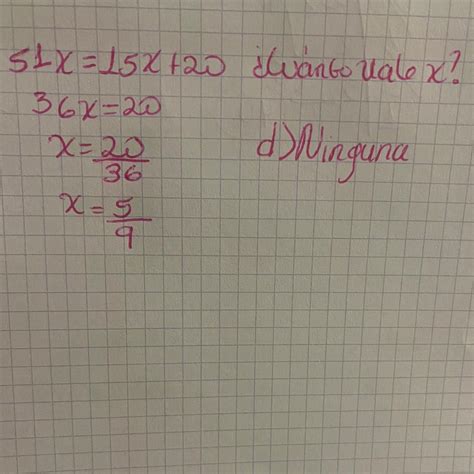 51x=15x+20 ¿Cuánto vale x?
36x=20
x=20/36
d) Ninguna
x=5/9